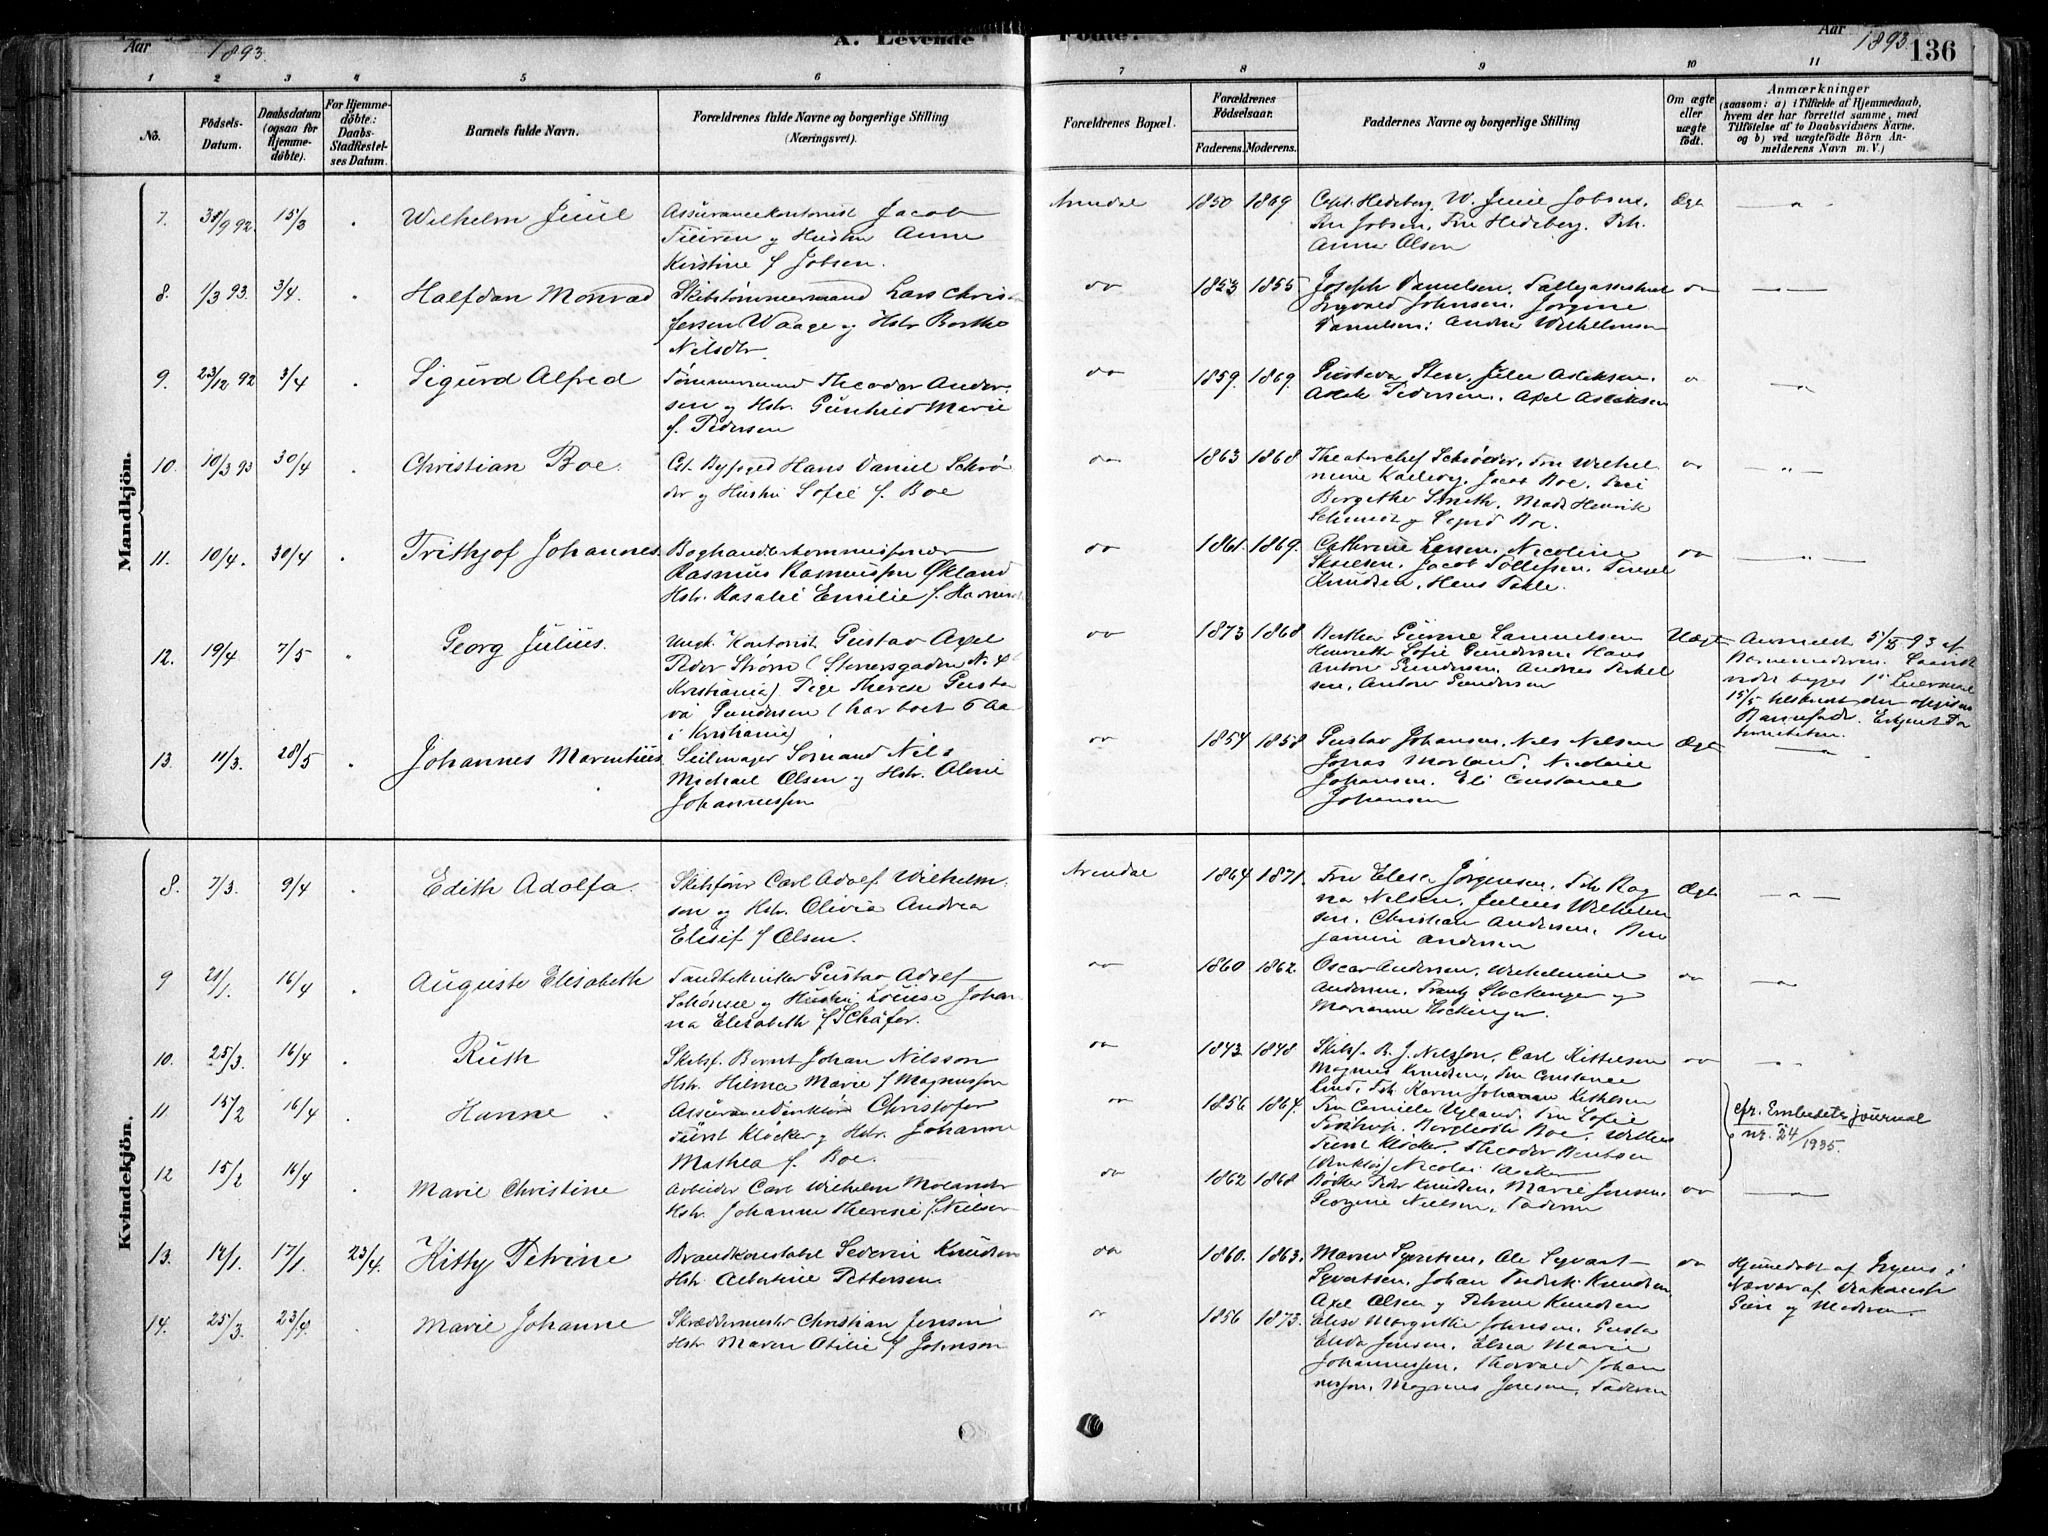 Aar 1893. A. Levende Fødte. Aar 1893. 136
1 2 3 4 5 6 7 8 9 10 11
No. Födsels-Datum. Daabsdatum (ogsaa for Hjemme-døbte). For Hjemme-døbte: Daabs-Stadfæstelses Datum. Barnets fulde Navn. Forældrenes fulde Navne og borgerlige Stilling (Næringsvei). Forældrenes Bopæl. Forældrenes Födselsaar. Faderens. Moderens. Faddernes Navne og borgerlige Stilling Om ægte eller uægte født. Anmærkninger (saasom: a) i Tilfælde af Hjemmedaab, hvem der har forrettet samme, med Tilføielse af to Daabsvidners Navne, og b) ved uægtefödte Börn Anmelderens Navn m. V.)
Mandkjön.
7. 9 92. 15/3 Wilhelm Juul Assurancekontorist Jacob Arendal 1850 1869 Capt. Hedeberg, W. Juul Jobsen, Ægte
og Hustru Anne Fru Jobsen, Fru Hedeberg, Frk.
Kirstine f. Jobsen. Anna Olsen
8. 1/3 93. 3/4. Halfdan Monrad Skibstømmermand Lars Christ do 1853 1855 Joseph Danielsen,
Jensen Waage og Hstr Berthe Ingvald Johnsen, Jørgine
Nilsdtr. Danielsen, Wilhelmsen
9. 23/12 92 3/4 Sigurd Alfred Tømmermand Theodor Ander- do 1859. 1869. Sten, Aslaksen,
sen og Hstr. Gunhild Marie Pedersen, Axel Aslaksen
f. Pedersen
10. 10/3 93 30/4 Christian Boe. Cst. Byfoged Hans Daniel Schrø- do 1863 1868 Theaterchef Schrøder, Fru Wilhel-
der og Hustru Sofie f. Boe mine Jacob Boe, Fru
Bergithe Smith, Mads Henrik
Schmidt og Sigrid Boe.
11. 10/4. 30/4 Frithjof Johannes. Boghandlerkommissionær do 1861. 1869. Cathrine Larsen, Nicoline
Rasmus Rasmussen Økland Jacob Tollefsen,
Hstr. Rosalie Emilie f. Knudsen, Hans
12. 19/4 7/5 Georg Julius. Ungk. Kontorist Gustav Axel do 1873 1868 Berthe Samuelsen Uægte Anmeldt 5/5 93 af
Peder Strøm (Stenersgaden No 4 Henriette Sofie Gundersen, Hans Barnemoderen.
Kristiania) Pige Therese Gusta- Anton Gundersen, Andreas 1ste Leiermaal
va Gundersen (har boet 5 Aa. sen, Anton Gundersen 15/5
i Kristiania) Barnefader.
13. 11/3. 28/5 Johannes Marentius Seilmager Sømand Nils do 1854 1858 Gustav Johansen, Nils Nilsen Ægte
Michael Olsen og Hstr. Jonas Morland, Nicoline
Johannessen Johansen, Eli Constance
Johansen
Kvindekjön.
8. 7/3. 9/4 Edith Adolfa. Skibsfører Carl Adolf Wilhelm- Arendal 1864 1871. Fru Elise Jørgensen, Frk Rag- Ægte
sen og Hstr. Olivia Andrea na Nilsen, Julius Wilhelm
Elisif f Olsen. sen, Christian Andersen, Ben
jamin Andersen
9 21/1. 16/4 Auguste Elisabeth Tandtekniker Gustav Adolf do 1860 1862. Oscar Andersen, Wilhelmine do
og Hustru Louise Johan- Andersen, Frantz Stockinger og
na Elisabeth f Schäfer. Marianne Stockinger.
10. 25/3. 16/4 Ruth Skibsf. Bernt Johan Nilsson do 1843. 1848 Skibsf. B. J. Nilsson, Carl Kittelsen do
Hstr. Hilma Marie f Magnusson Magnus Knudsen, Fru Constance
Lund, Frk Karen Johanne Kittelsen
11. 15/2 16/4 Hanne Assurancedirektør Christofer do 1856 1864. Fru Camilla Ugland, Fru Sofie cfr. Embedets journal
Fürst Kløcker og Hstr. Johanne Borghild Boe, nr. 24/1935.
Mathea f. Boe. Fürst Kløcker, Theodor Berntsen
Nicolai
12 15/2 16/4 Marie Christine Arbeider Carl Wilhelm Molander do 1862 1868 Bødker Peder Knudsen, Marie Jensen, do
Hstr. Johanne Therese f. Nielsen Georgine Nielsen, Faderen
13. 14/1. 17/1. 23/4. Kitty Petrine Brandkonstabel Severin Knudsen do 1860. 1863. Ole Syvert- do Hjemmedøbt af
Hstr Albertine Pettersen. Syvertsen, Johan Fredrik Knudsen, Nærvær af
Axel Olsen og Petrine Knudsen og Moderen.
14. 25/3. 23/4. Marie Johanne Skræddermester Christian Jensen do 1856 1873. Elise Margrethe Johnsen, Gusta
Hstr. Maren Otilie f Johnson Elida Jensen, Elna Marie
Johannessen, Thorvald Johan
nessen, Magnus Jensen, Faderen